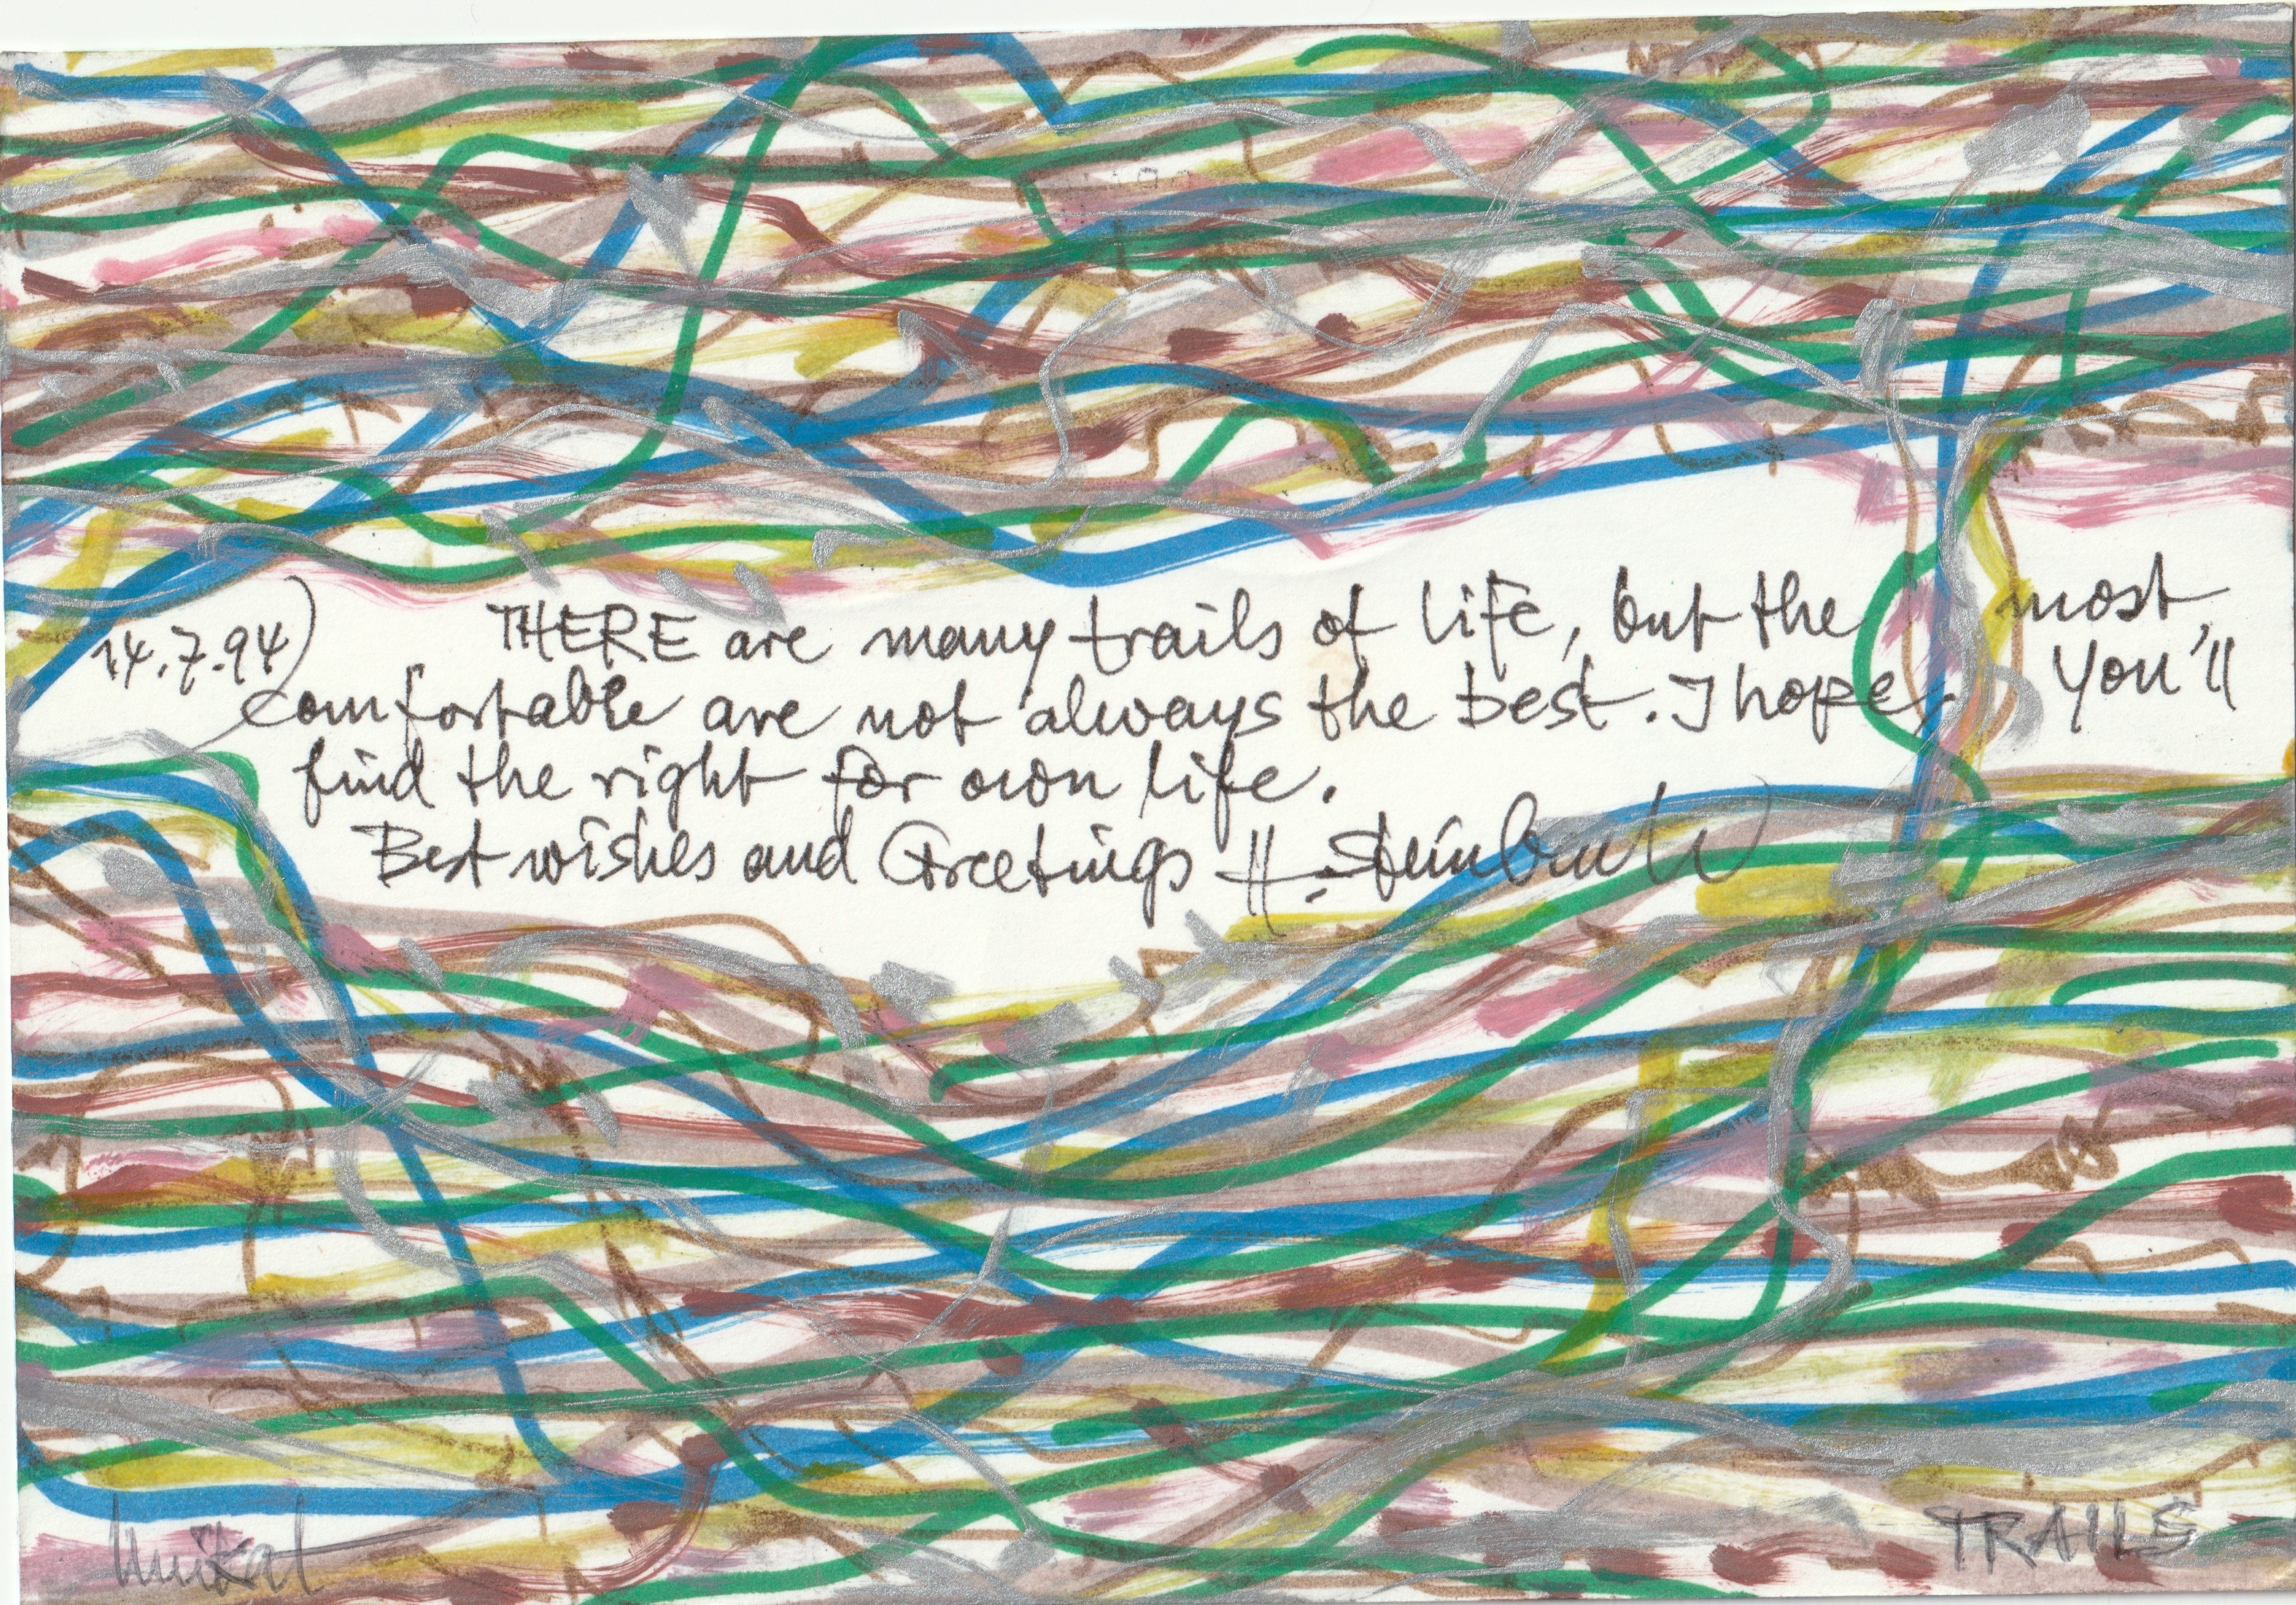 14.7.94) THERE are many trails of life, but the most
comfortable are not always the best. I hope, you'll
find the right for own life.
Best wishes and Greetings H. Steinbruch
Unikat
TRAILS